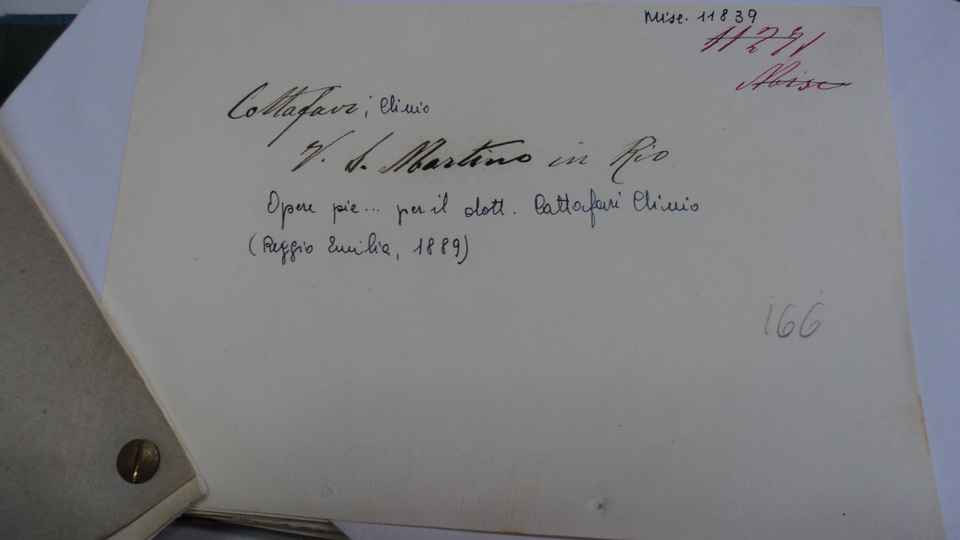 Misc. 11839
1127
Misc
Cottafavi, Clinio
V. S. Martino in Rio
Opere pie... per il dott. Cottafavi Clinio
(Reggio Emilia, 1889)
166